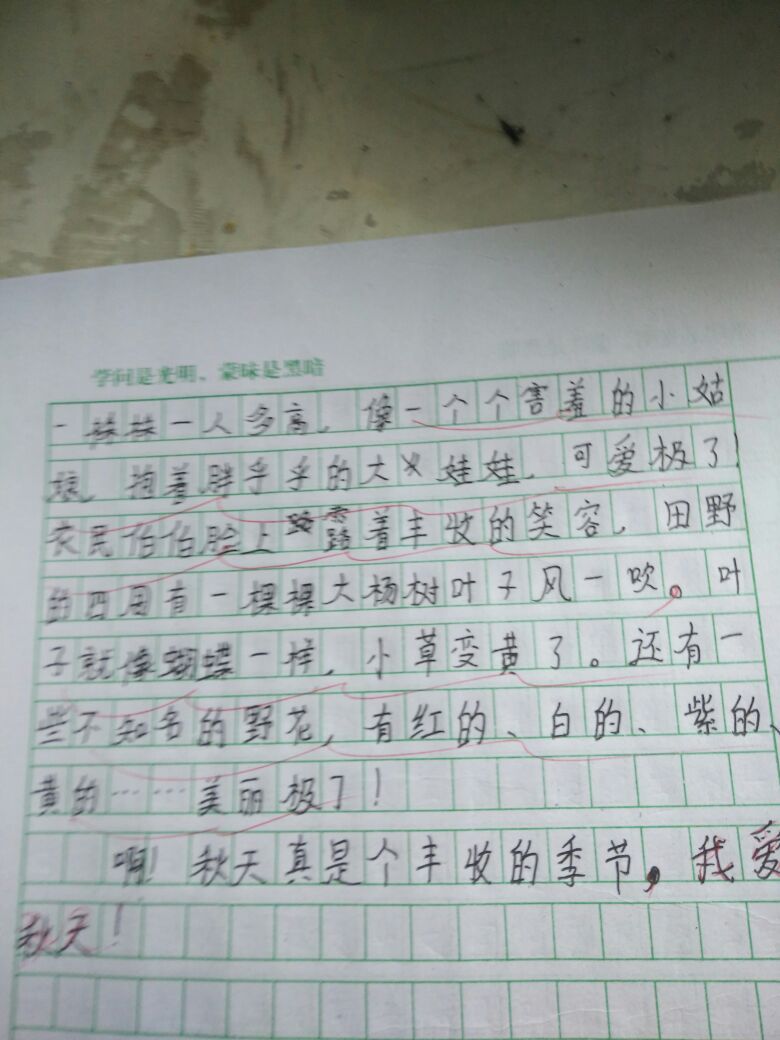 学问是光明，蒙昧是黑暗
一株株一人多高，像一个个害羞的小姑
娘，抱着胖乎乎的大娃娃，可爱极了！
农民伯伯脸上露着丰收的笑容，田野
的四周有一棵棵大杨树叶子风一吹。叶
子就像蝴蝶一样，小草变黄了。还有一
些不知名的野花，有红的、白的、紫的、
黄的……美丽极了！
啊！秋天真是个丰收的季节，我爱
秋天！